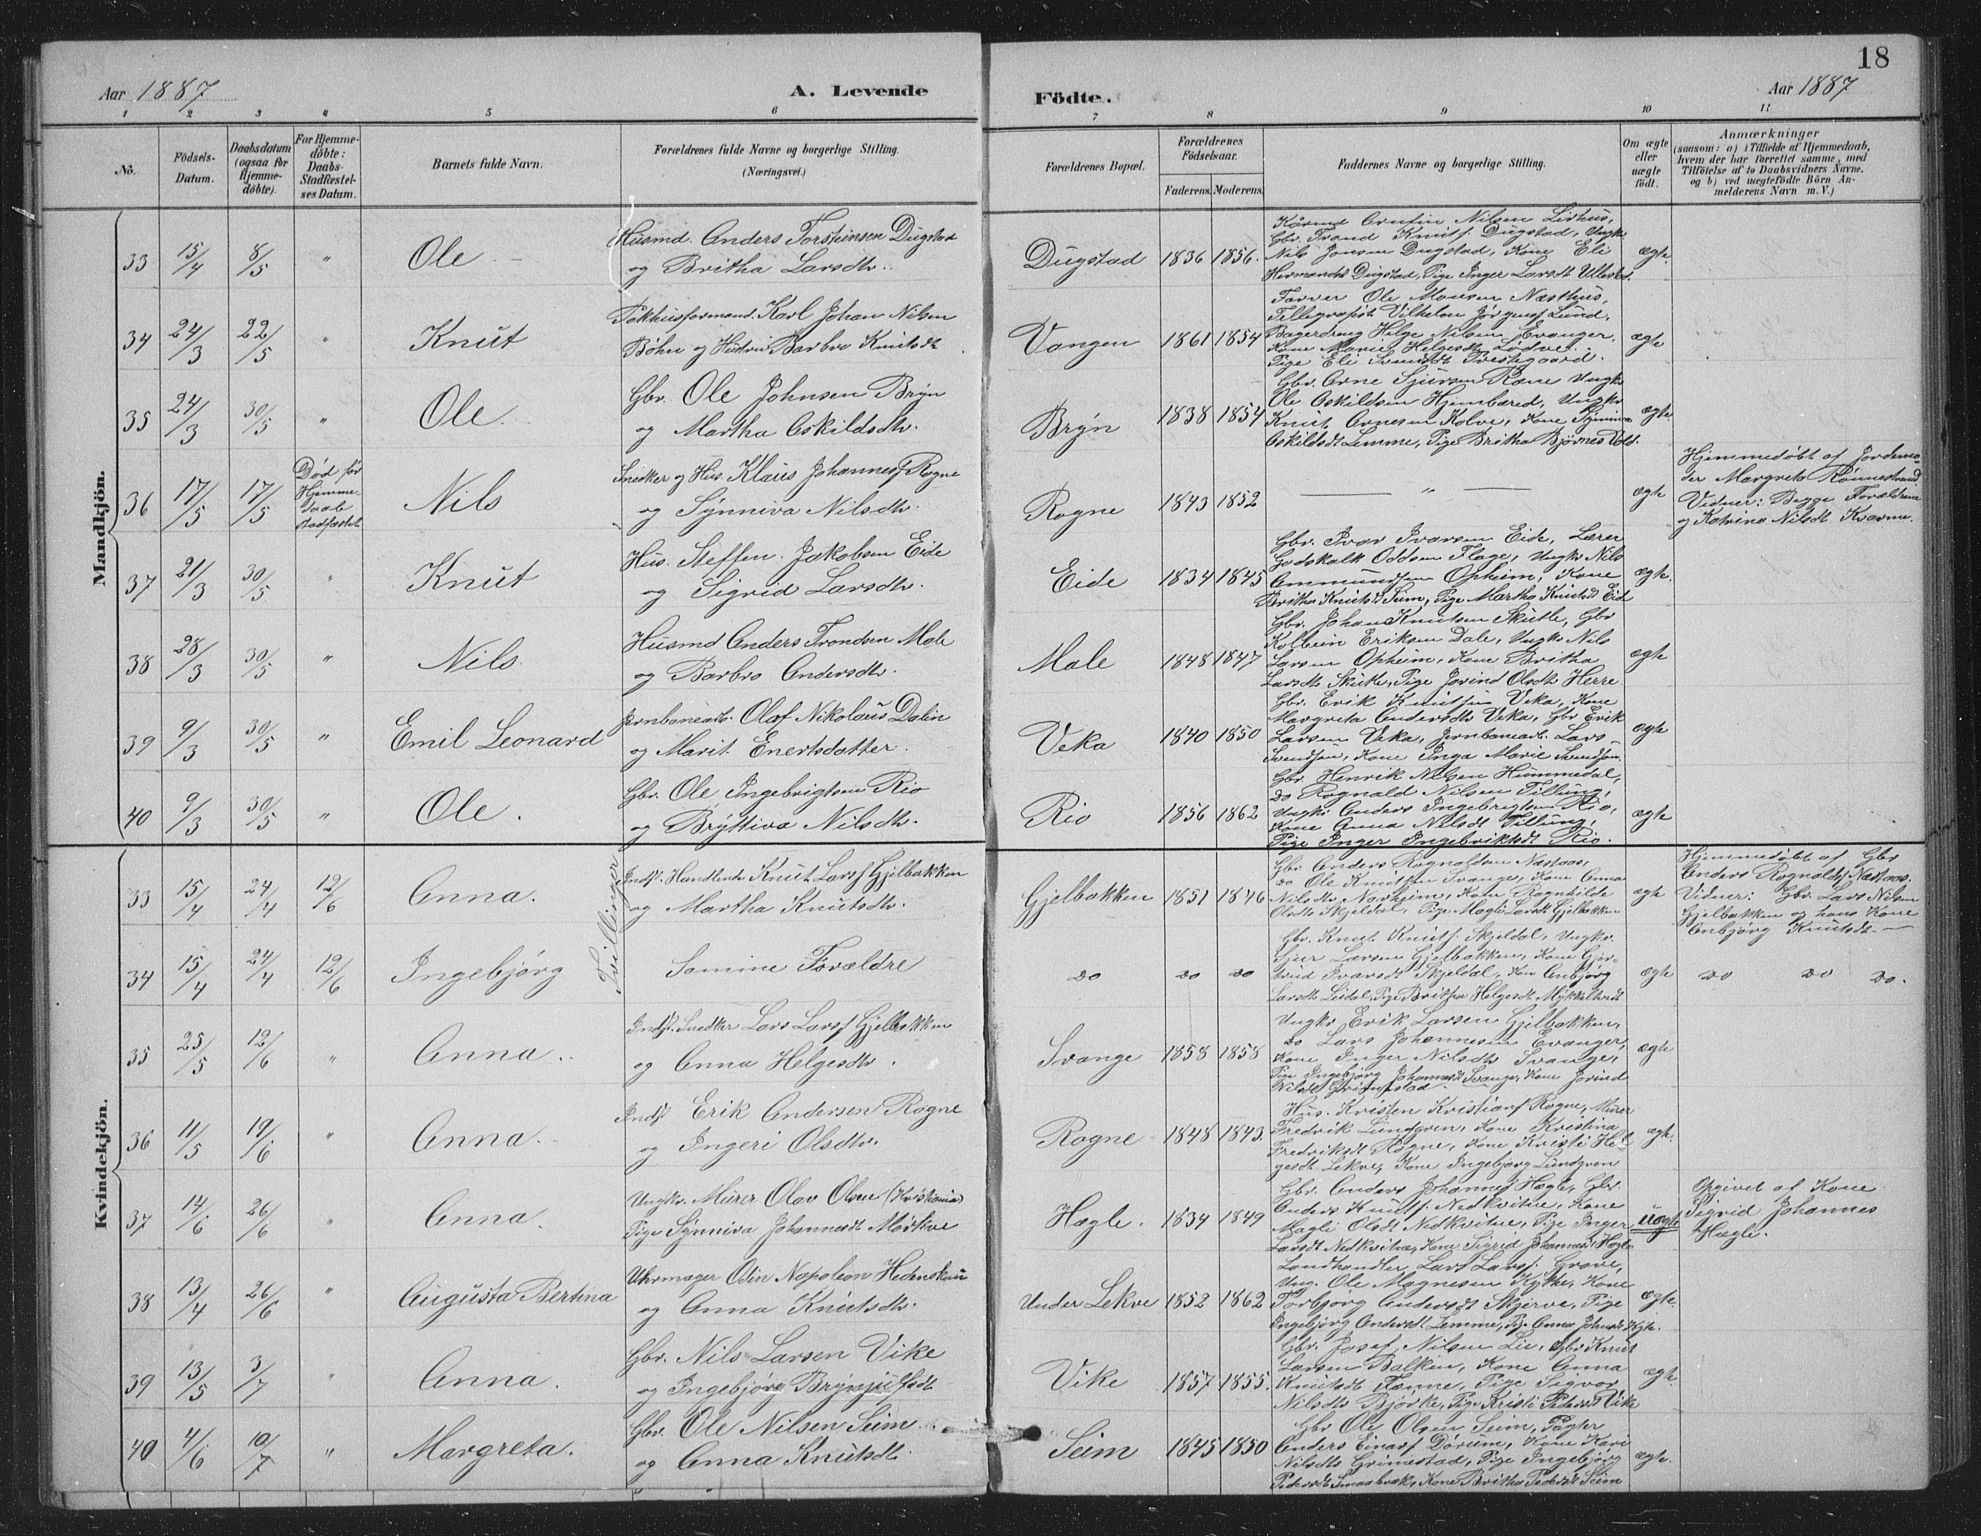 18
Aar 1887
A. Levende
Födte.
Aar 1887
1 2 3 4 5 6 7 8 9 10 11
No.
Födsels-Datum.
Daabsdatum (ogsaa for Hjemme-döbte).
For Hjemme-döbte: Daabs-Stadfæstel-ses Datum.
Barnets fulde Navn.
Forældrenes fulde Navne og borgerlige Stilling.
(Næringsvei.)
Forældrenes Bopæl.
Forældrenes Födselsaar.
Faderens. Moderens.
Faddernes Navne og borgerlige Stilling.
Om ægte eller uægte födt.
Anmærkninger
(saasom: a) i Tilfælde af Hjemmedaab, hvem der har forrettet samme, med Tilföielse af to Daabsvidners Navne. og b) ved uægtefödte Börn An-melderens Navn m. V.)
Mandkjön.
33 15/4 8/5 " Ole
Husmd. Anders Torsteinsen Dugstad
og Britha Larsdtr.
Dugstad 1836 1856.
Gbr. Trond Knutsf. Dugstad, Ungk.
Nils Jonsen Dugstad, Kone Eli
Hermandsdt Dugstad, Pige Inger Larsdt Ullestad.
ægte.
34 24/3 22/5 " Knut
Pakhusformand. Karl Johan Nilsen
Bøhn og Hustru Barbro Knutsdt
Vangen 1861 1854
Farver Ole Monsen Næsthus,
Telegrafist Vilhelm Jørgensf Lund,
Bagerdreng Helge Nilsen Evanger,
Kone Marie Helgesdtr Lødve,
Pige Eli Prestegaard.
ægte
35 24/3 30/5 " Ole.
Gbr. Ole Johnsen Bryn
og Martha Eskildsdtr.
Bryn 1838 1854
Gbr. Arne Sjursen Rene Ungk
Ole Eskildsen Hjembæred, Ungkr
Knut Arnesen Kolve, Kone Synniva
Askildsdt Lemme, Pige Britha Bjørnesdt
ægte.
36 17/5 17/5 Død før Hjemme-daab stadfæstet
Nils
Snedker og Hus. Klaus Johannesf Rogne
og Synniva Nilsdtr.
Rogne 1843 1852
— " —
ægte
Hjemmedøbt af Jordemo-
der Margreta Rønnestrand
Vidner: Begge Forældrene
og Katrina Nilsdt Kvarme.
37 21/3 30/5 " Knut
Hus. Steffen Jakobsen Eide
og Sigrid Larsdtr.
Eide 1834 1845
Gbr. Ivar Ivarsen Eide, Lærer
Godskalk Oddsen Flage, Ungkr Nils
Ammundsen Opheim, Kone
Britha Knutsdt Seim, Pige Martha Knutsdt Eide
ægte.
38 28/3 30/5 " Nils
Husmd Anders Trondsen Male
og Barbro Andersdtr.
Male 1848 1847
Gbr. Johan Knutsen Skutle, Gbr
Kolbein Eriksen Dale, Ungkr Nils
Larsen Opheim, Kone Britha
Larsdt Skutle, Pige Jorind Olsdt Herre
ægte
39 9/3 30/5 " Emil Leonard
Jernbanearb. Olaf Nikolaus Dalin
og Marit Enertsdatter.
Veka 1840 1850
Gbr. Erik Knutsen Veka, Kone
Margreta Andersdt Veka, Gbr Erik
Larsen Veka, Jernbanearb. Lars
Svendsen, Kone Inga Marie Svendsen
ægte
40 9/3 30/5 " Ole.
Gbr. Ole Ingebrigtsen Rio
og Bryttiva Nilsdtr.
Rio 1856 1862
Gbr. Henrik Nilsen Hummedal,
do Rognald Nilsen Tillung,
Ungkr Anders Ingebrigtsen Rio,
Kone Anna Nilsdt Tillung,
Pige Inger Ingebriktsdt Rio.
ægte
Kvindekjön.
Tvillinger
33 15/4 24/4 12/6 Anna.
Indst. Handlende Knut Larsf Gjelbakken
og Martha Knutsdtr.
Gjelbakken 1851 1846
Gbr Anders Rognaldsen Næstaas,
do Ole Knutsen Svange, Kone Anna
Nilsdtr Norheim, Kone Ragnhilde
Olsdt Skjeldal, Pige Magli Larsdt Gjelbakken
ægte
Hjemmedøbt af Gbr
Anders Rognaldsf Næstaas.
Vidner: Gbr Lars Nilsen
Gjelbakken og hans Kone
Anbjørg Knutsdt.
34 15/4 24/4 12/6 Ingebjørg
Samme Forældre
do do do
Gbr. Knut Knutsf. Skjeldal, Ungkr.
Sjur Larsen Gjelbakken, Kone Gjer-
trud Ivarsdt Skjeldal, Kone Anbjørg
Larsdt Leidal, Pige Britha Helgesdt
ægte
do do do.
35 25/5 12/6 " Anna.
Indst. Snedker Lars Larsf Gjelbakken
og Anna Helgesdtr.
Svange 1858 1858
Ungkr Erik Larsen Gjelbakken,
do Lars Johannesen Evanger,
Kone Inger Nilsdtr Svange,
Pige Ingebjørg Johannesdt Svange, Kone Jorind
Nilsdt Grimestad.
ægte
36 11/5 19/6 " Anna.
Indst Erik Andersen Rogne
og Ingeri Olsdtr.
Rogne 1848 1843.
Hus. Kristen Kristiansf Rogne, Murer
Fredrik Lundgren, Kone Kristina
Fredriksdt Rogne, Kone Kristi Hel-
gesdt Lekve, Kone Ingebjørg Lundgren
ægte.
37 14/6 26/6 " Anna.
Ungkr. Murer Olav Olsen (Kristiania)
Pige Synniva Johannesdt Mørkve
Hægle. 1834 1849
Gbr. Anders Johannesf Hægle, Gbr.
Anders Knutsf. Nedkvitne, Kone
Magli Olsdt Nedkvitne, Pige Inger
Larsdt Nedkvitne, Kone Sigrid Johannesdt Hægle
uægte
Opgivet af Kone
Sigrid Johannes
Hægle.
38 13/4 26/6 " Augusta Bertina
Uhrmager Odin Napoleon Hedenskau
og Anna Knutsdtr.
Under Lekve 1852 1862
Landhandler Lars Larsf. Grove,
Ung. Ole Magnesen Kytke, Kone
Torbjørg Andersdt Skjerve, Pige
Ingebjørg Andersdt Lemme, Pige Anna
ægte.
39 13/5 3/7 Anna.
Gbr. Nils Larsen Vike
og Ingebjørg Brynjulfsdt
Vike 1857 1855.
Gbr. Josef Nilsen Lie, Gbr Knut
Larsen Bakken, Kone Anna
Knutsdt Fenne, Pige Sigvor
Nilsdt Bjørke, Pige Kristi Pedersdt Vike
ægte.
40 4/6 10/7 " Margreta.
Gbr. Ole Nilsen Seim
og Anna Knutsdt.
Seim 1845 1850
Gbr Ole Olsen Seim, Pagter
Anders Einarsf Dørum, Kone Kari
Nilsdt Grimestad, Pige Ingebjørg
Pedersdt Smaabræk, Kone Britha Pedersdt Seim
ægte.